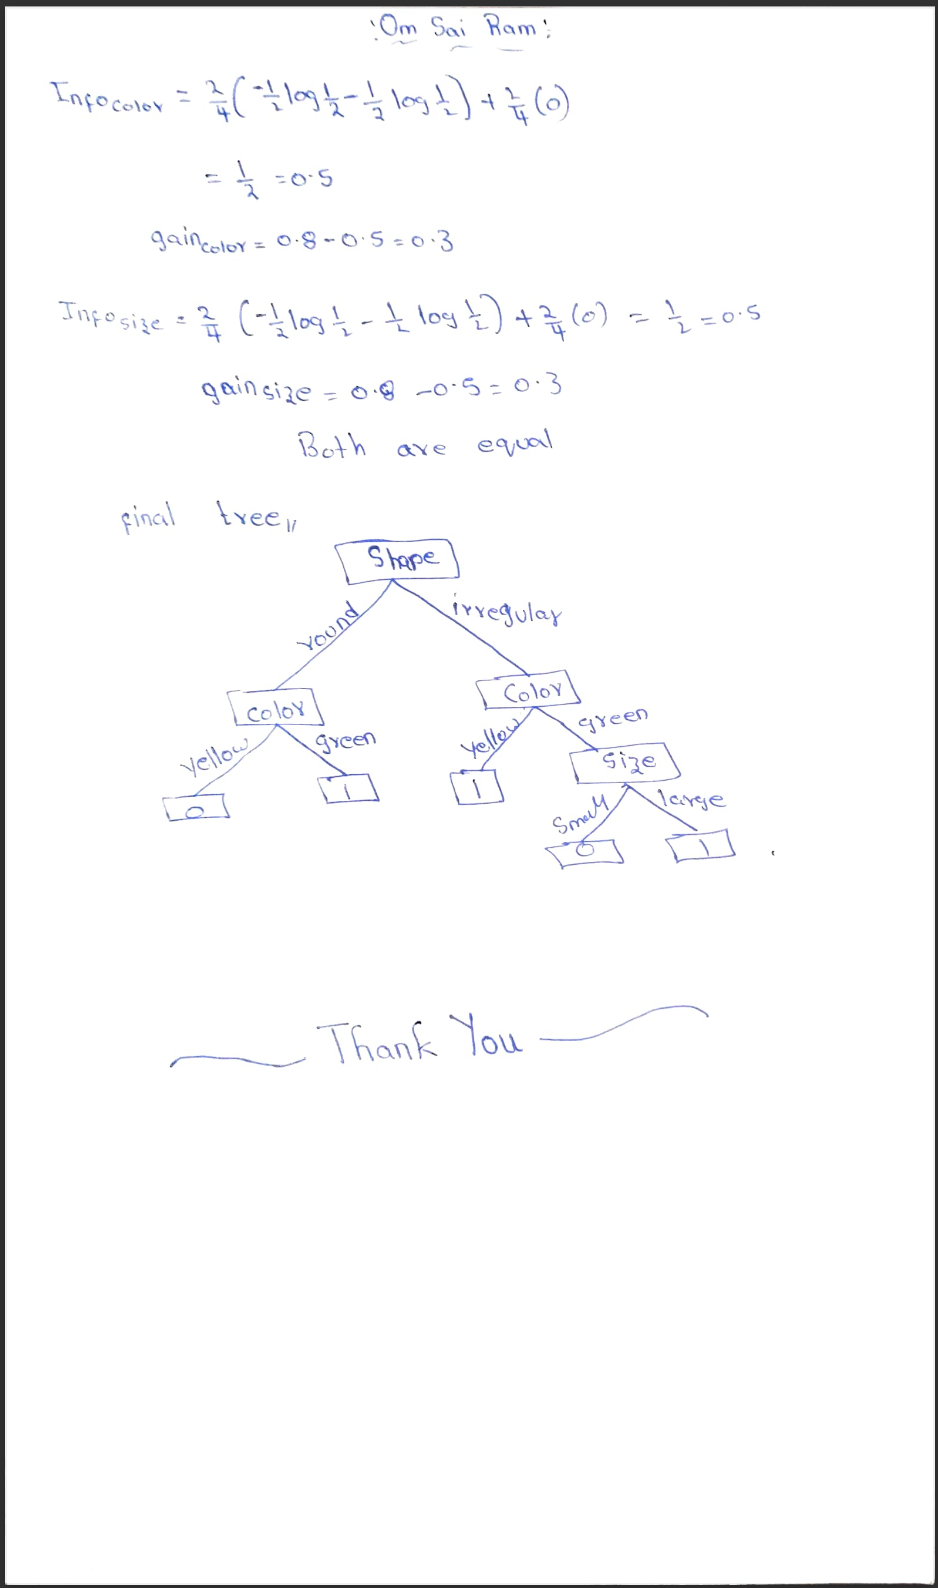 :Om Sai Ram:
Infocolor = 2/4(-1/2log1/2-1/2log1/2)+2/4(0)
= 1/2 =0.5
gaincolor = 0.8-0.5=0.3
Infosize = 2/4 (-1/2log1/2-1/2 log1/2)+2/4(0) = 1/2 =0.5
gainsize = 0.8 -0.5= 0.3
Both are equal
final tree //
Shape
round irregular
color Color
yellow green yellow green
Size
0 1 1
Small large
0 1
Thank You